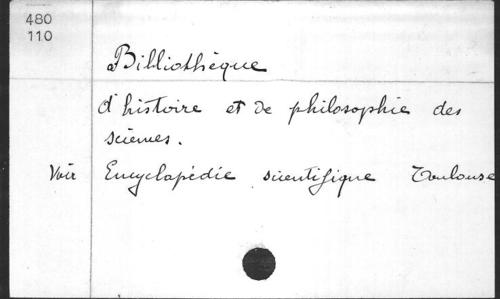 480
110
Bibliothèque
d'histoire et de philosophie des
sciences.
Voir Encyclopédie scientifique Toulouse